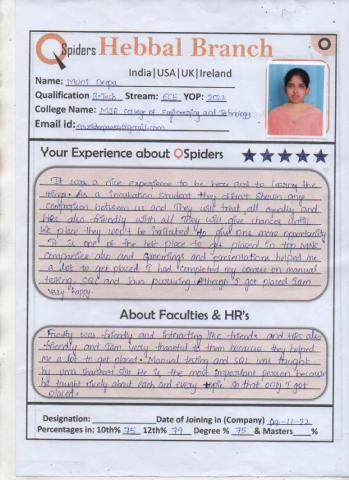 QSpiders Hebbal Branch
India|USA|UK|Ireland
Name: Muni Deepa
Qualification B-Tech Stream: ECE YOP: 2022
College Name: MJR College of Engineering and Technology
Email id:
Your Experience about QSpiders
It was a nice experience to be here and to learning the
things. As a incubation student they didn't shown any
comparison between us and They will treat all equally and
HRs also friendly with all They will give chances until
we place they won't be to give one more opportunity
It is one of the best place to get placed in top MNC
companies also and Groomings and presentations helped me
a lot to get placed I had completed my course on manual
testing, SQL and Java pursuing Although I got placed Iam
very happy.
About Faculties & HR's
Faculty was friendly and interacting like friends and HRs also
friendly and Iam very thankful to them because they helped
me a lot to get placed. Manual testing and SQL was taught
by sir He is the most important person because
he taught nicely about each and every topic so that only I got
placed.
Designation: Date of Joining in (Company) 02-11-22
Percentages in: 10th% 75 12th% 79 Degree % 75 & Masters %